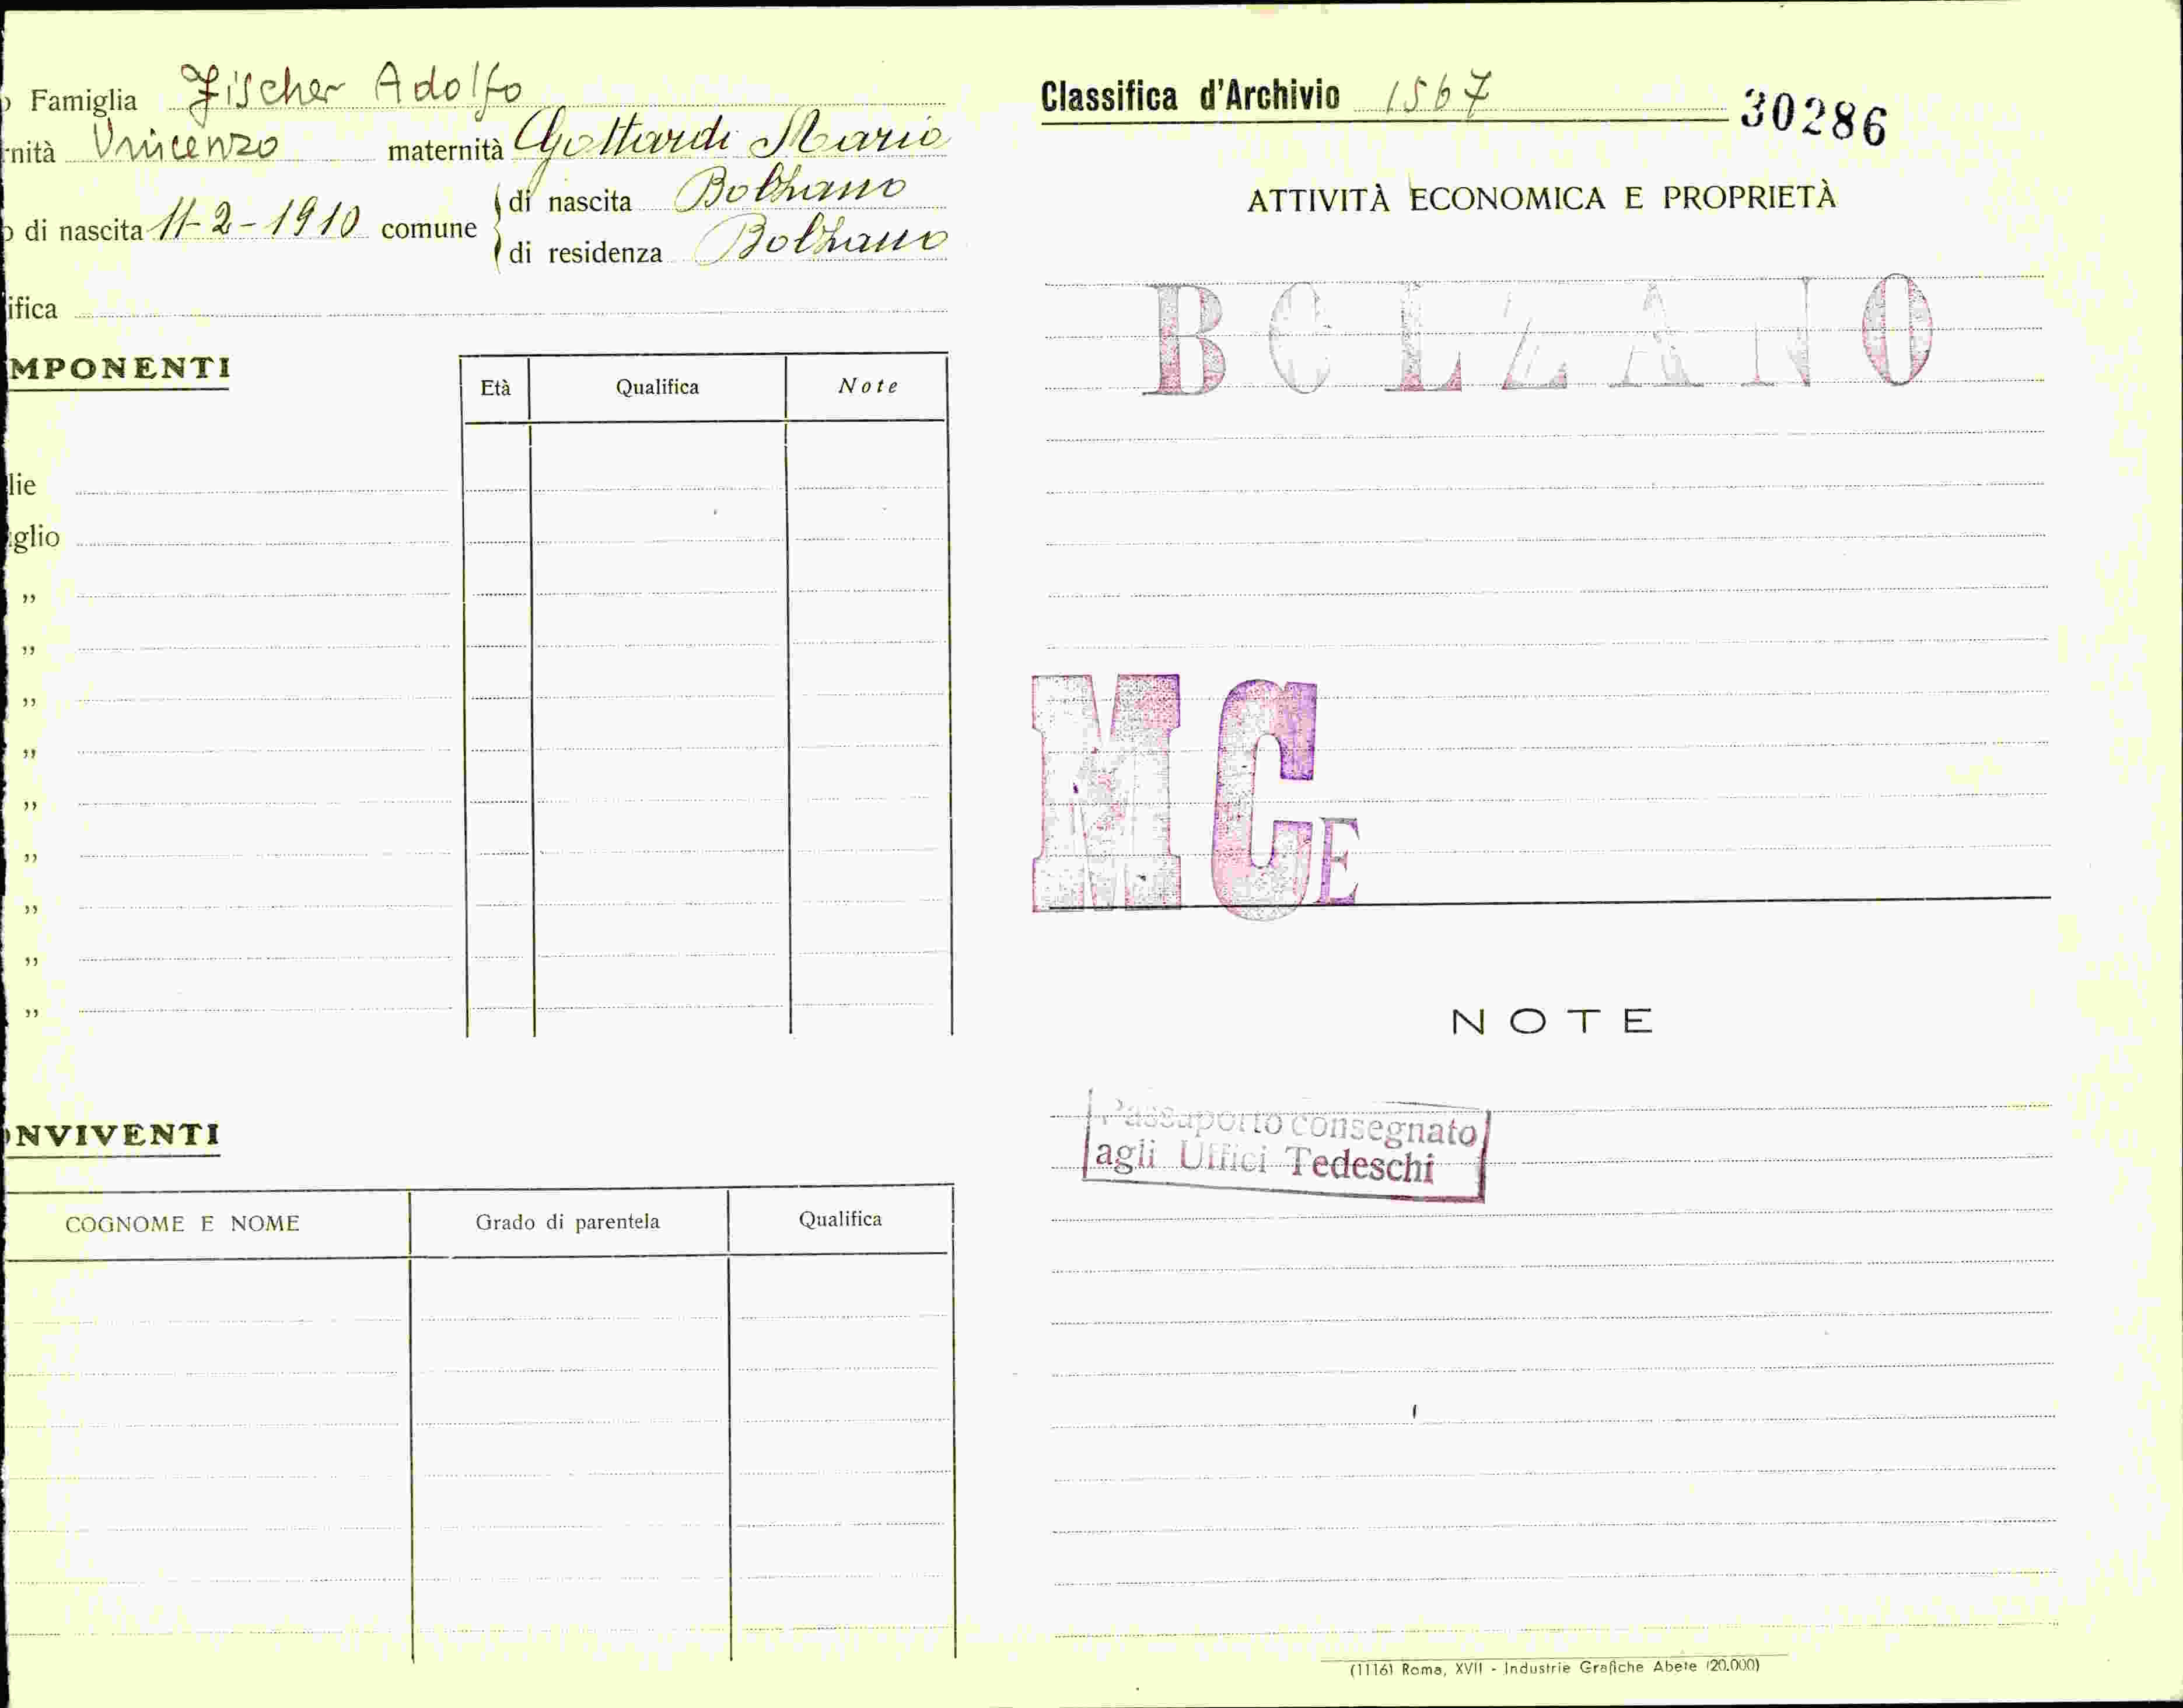 Famiglia Fischer Adolfo
nità Vincenzo maternità Gottardi Maria
di nascita 11-2-1910 comune
di nascita Bolzano
di residenza Bolzano
ifica
MPONENTI
Età Qualifica Note
lie
glio
"
"
"
"
"
"
"
"
"
NVIVENTI
COGNOME E NOME Grado di parentela Qualifica
Classifica d'Archivio 1567 30286
ATTIVITÀ ECONOMICA E PROPRIETÀ
BOLZANO
MCE
NOTE
Passaporto consegnato
agli Uffici Tedeschi
(1116) Roma, XVII - Industrie Grafiche Abete (20.000)